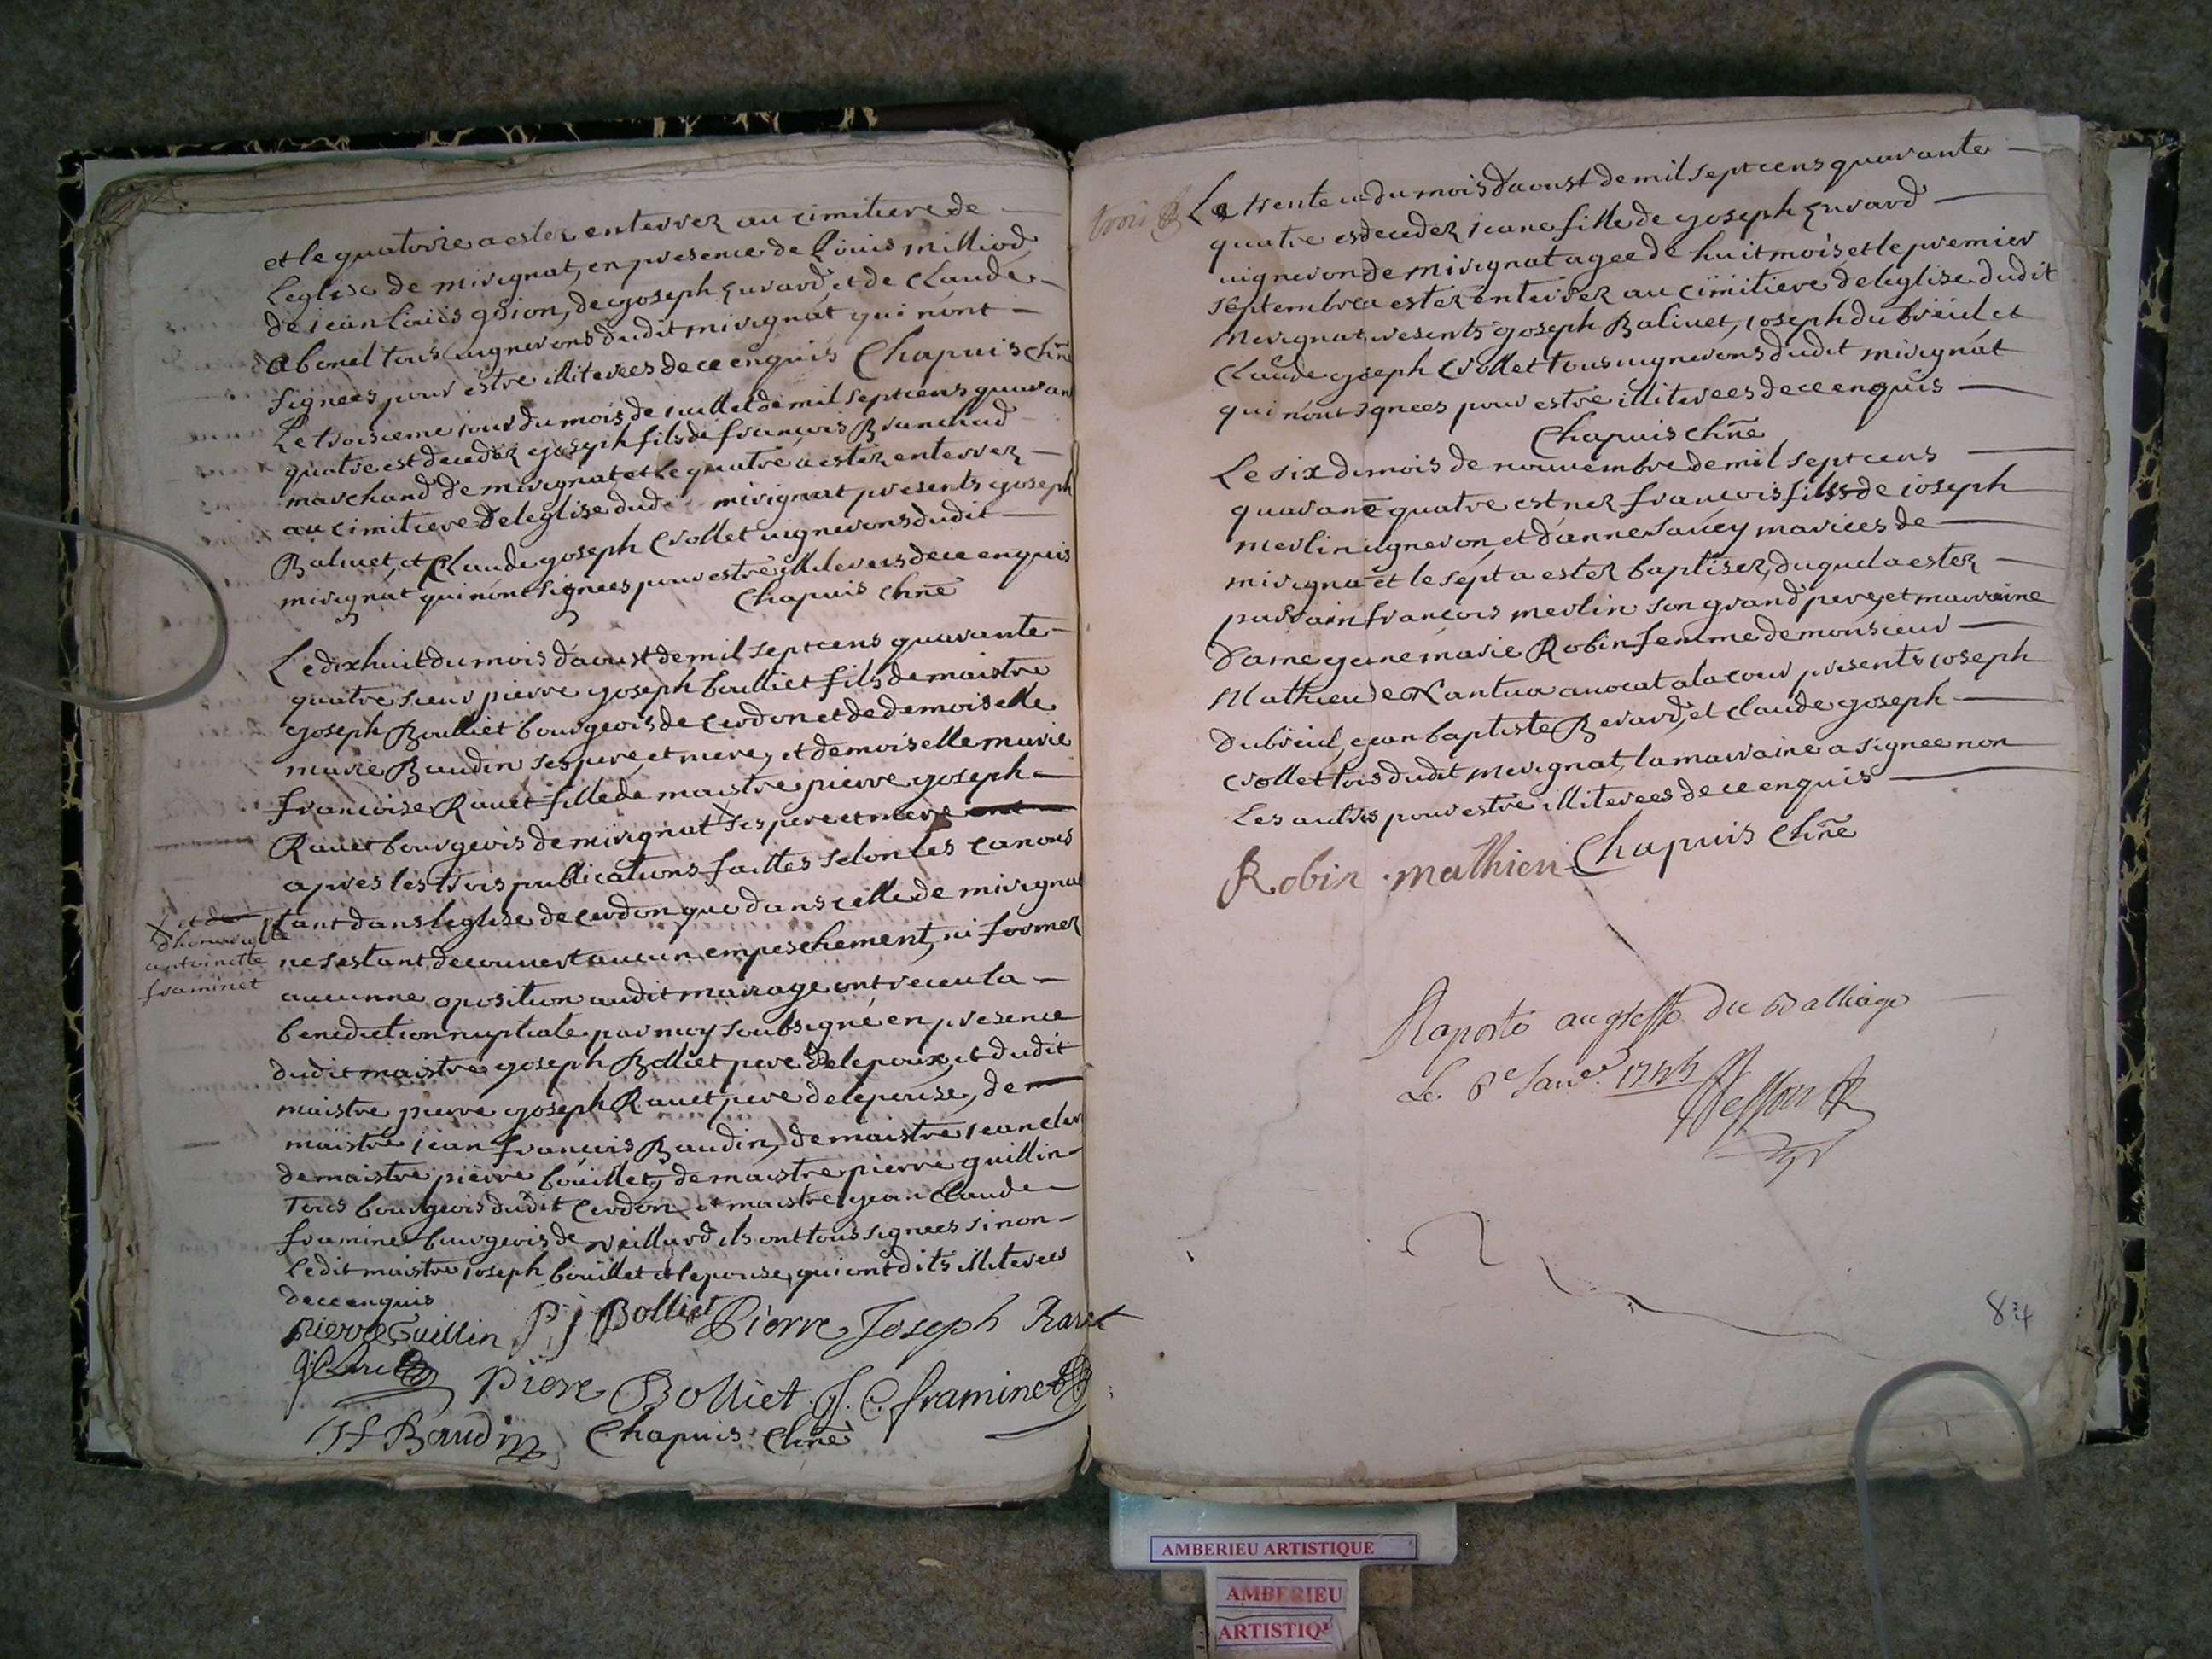 et le quatorze a estez enterrez au cimitiere de
Leglise de mirignat, en presence de Louis milliod
de jean Louis goion, de joseph Euvard, et de Claude
abonel tous uignerons dudit mirignat qui nont
signees pour estre illiterees de ce enquis Chapuis chne
Le troisieme jour du mois de juillet de mil sept cens quaran
quatre est decedez joseph fils de francois Brunchud
marchand de mirignat, et le quatre a estez enterrez
au cimitiere de leglise dud mirignat presents joseph
Baliuet, et Claude joseph Crollet uignerons dudit
mirignat qui nont signees pour estre illiterees de ce enquis
Chapuis chne
Le dixhuit du mois daoust de mil sept cens quarante
quatre sieur pierre joseph boulliet fils de maistre
joseph Boulliet bourgeois de Cerdon et de demoiselle
marie Baudin ses pere et mere, et demoiselle marie
francoise Rauet fille de maistre pierre joseph
Rauet bourgeois de mirignat x ses pere et mere ont
apres les trois publications faittes selon les canons
tant dans leglise de cerdon que dans celle de mirignat
x et de
dhonorable
antoinette
framinet
ne sestant decouuert aucun empeschement, ni former
aucunne oposition audit mariage ont receu la
benediction nuptiale par moy soubsigné en presence
dudit maistre joseph Bolliet pere de lepoux, et dudit
maistre pierre joseph Rauet pere de lepouse, de
maistre jean francois Baudin, de maistre jean cler
de maistre pierre boüillet, de maistre pierre guillin
tous bourgeois dudit Cerdon et maistre jean Claude
framinet bourgeois de ueillard ils ont tous signees sinon
ledit maistre joseph boüillet et lepouse, qui ont dits illiterees
de ce enquis
pierre Guillin P j Bolliet Pierre Joseph Ravet
piere Bolliet J. C. framinet
J f Baudin Chapuis chne
trois
Le trente u du mois daoust de mil sept cens quarante
quatre est decedez jeane fille de joseph Euvard
uigneron de mirignat agee de huit mois et le premier
septembre a estez enterrez au cimitiere de leglise dudit
Mirignat presents joseph Baliuet, joseph du breüil et
Claude joseph Crollet tous uignerons dudit mirignat
qui nont signees pour estre illiterees de ce enquis
Chapuis chne
Le six du mois de nouuembre de mil sept cens
quarante quatre est nez francois fils de joseph
merlin uigneron, et danne Sauey mariees de
mirignat et le sept a estez baptisez, duquel a estez
parrain francois merlin son grand pere, et marraine
Dame jeane marie Robin femme de monsieur
Mathieu de Nantua auocat a la cour presents joseph
Dubreüil, jean baptiste Berard, et Claude joseph
Crollet tous dudit merignat, la marraine a signee non
Les autres pour estre illiterees de ce enquis
Robin mathieu Chapuis chne
Raporté au greffe du Balliage
Le 8e Janer.
84
AMBERIEU ARTISTIQUE
AMBERIEU
ARTISTIQ